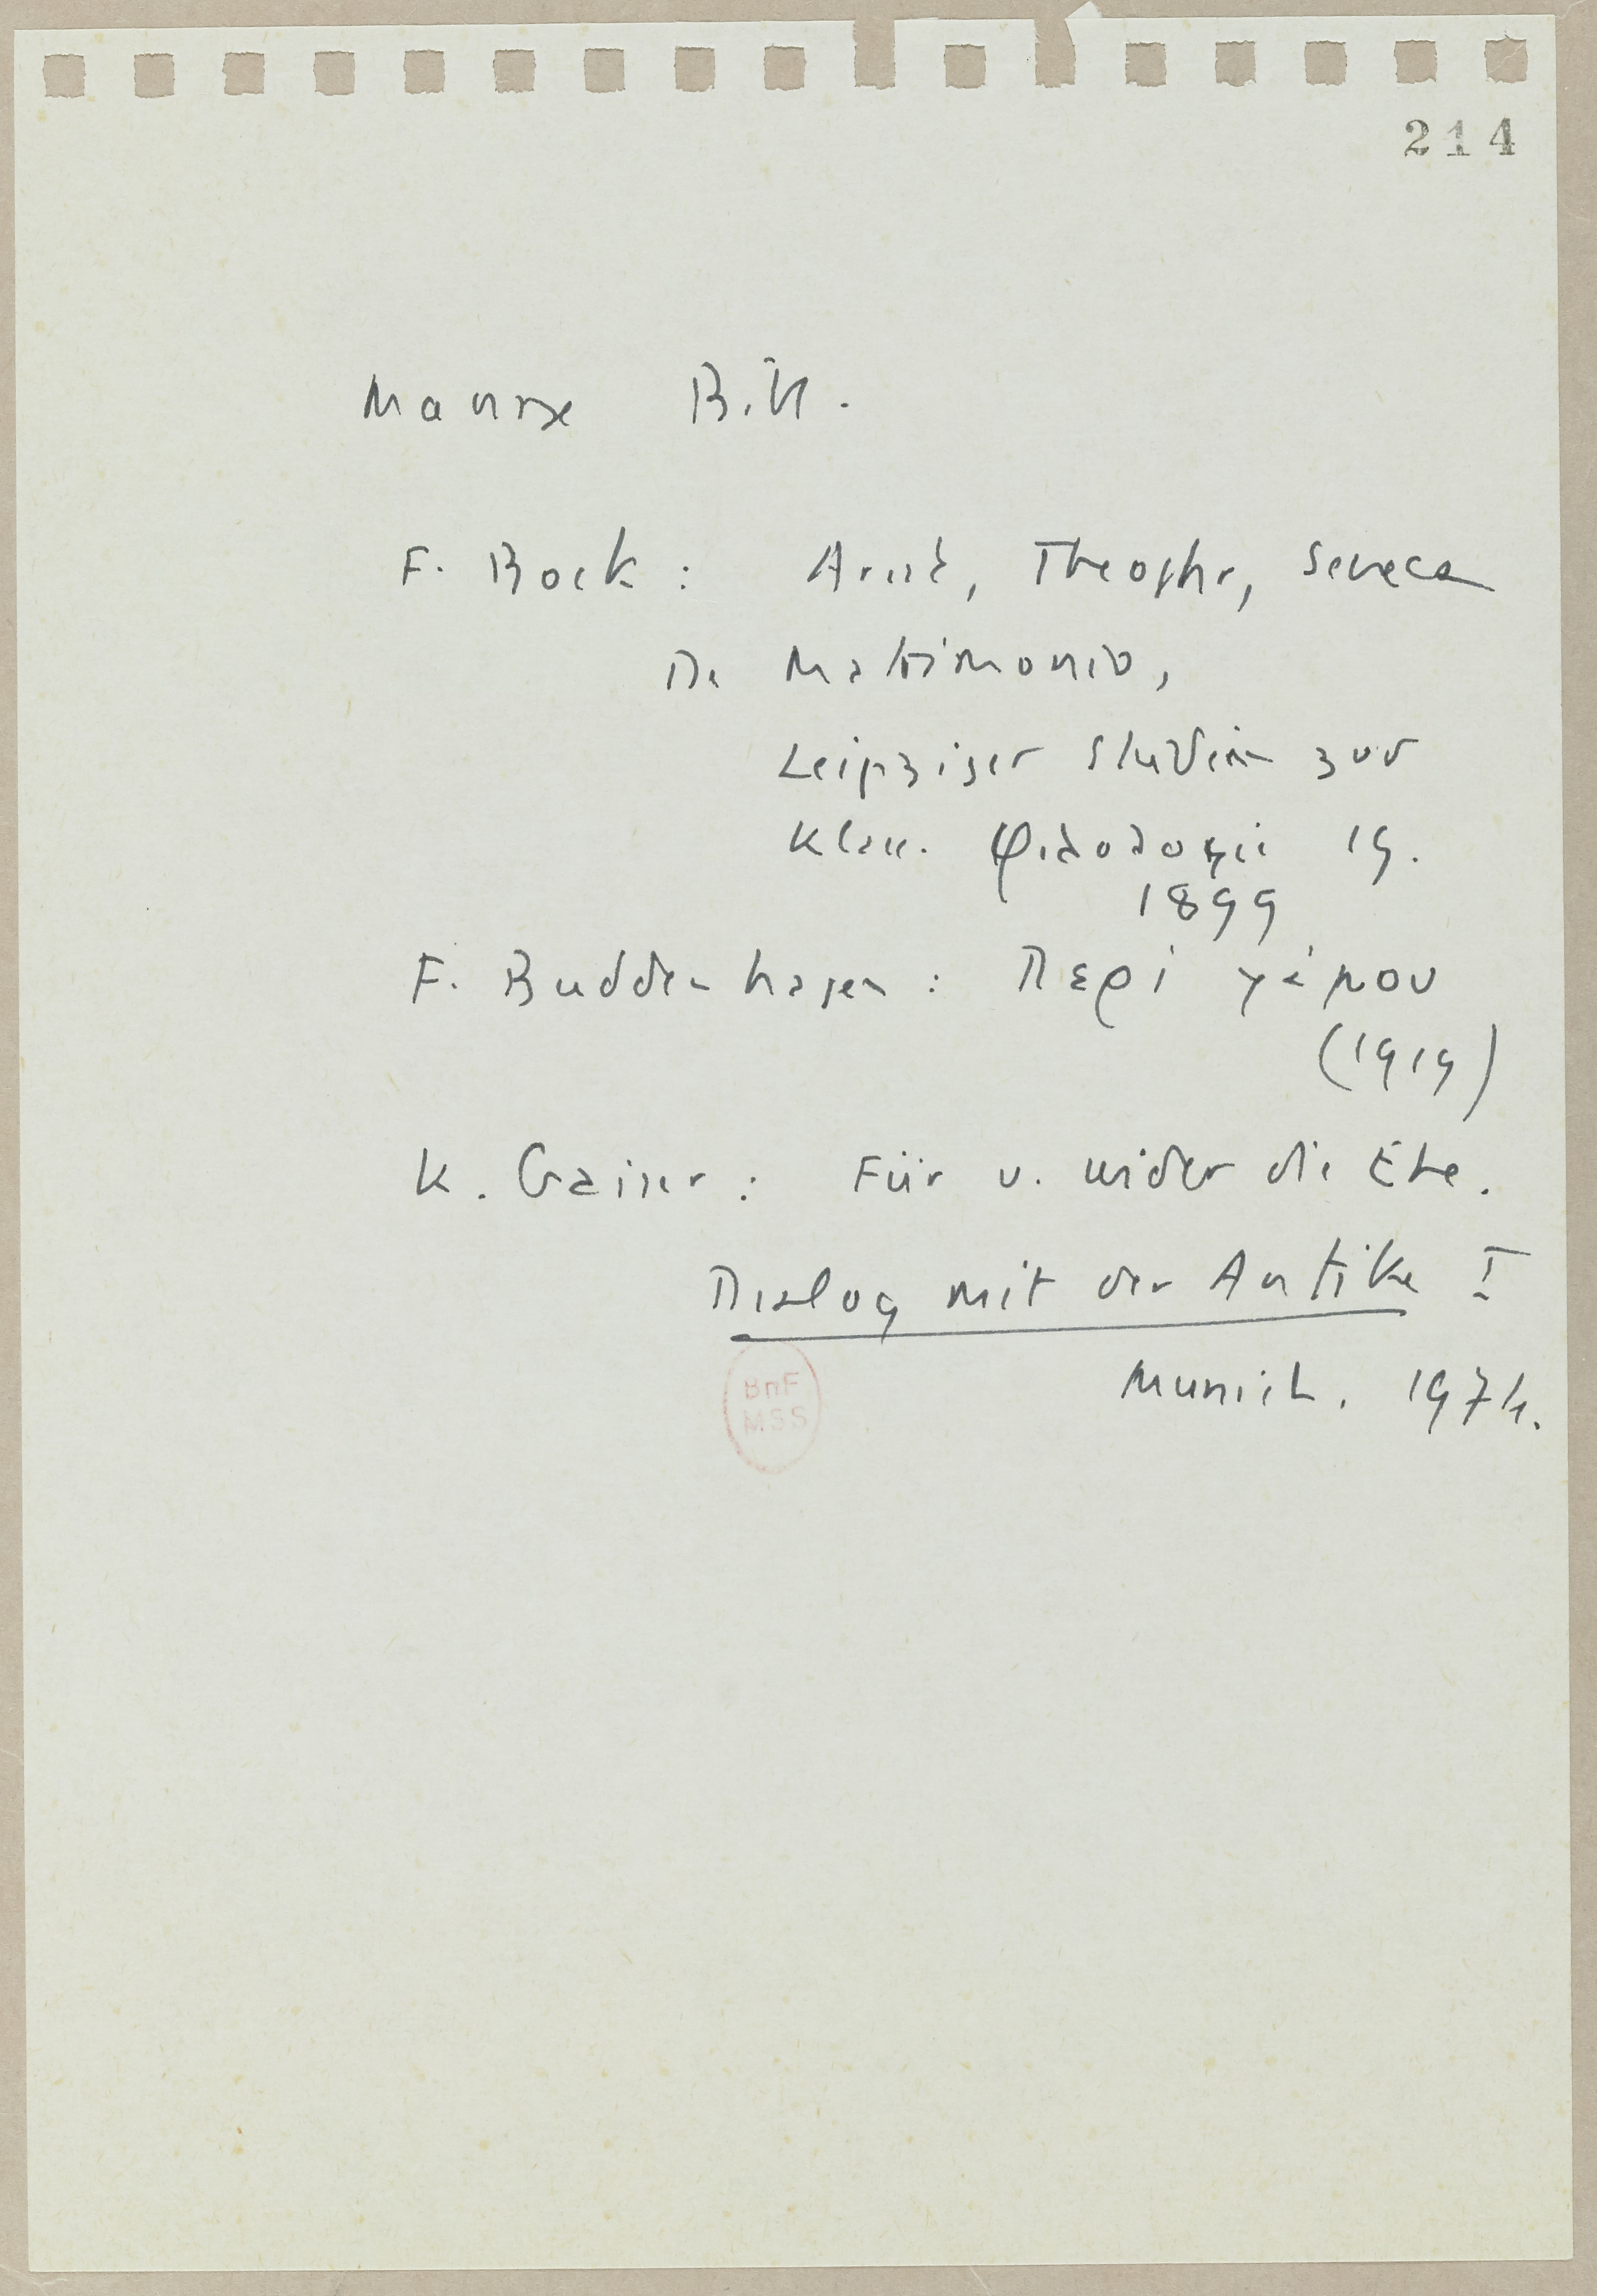 214
Mariage Bibl.
F. Bock : Arist, Theophr, Seneca
De Matrimonio,
Leipziger Studien zur
Klass. Φιλολογie 19.
1899
F. Buddenhagen : Περί γάμου
(1919)
K. Gaiser : Für u. wider die Ehe.
Dialog mit der Antike I
BnF
MSS
Munich. 1974.